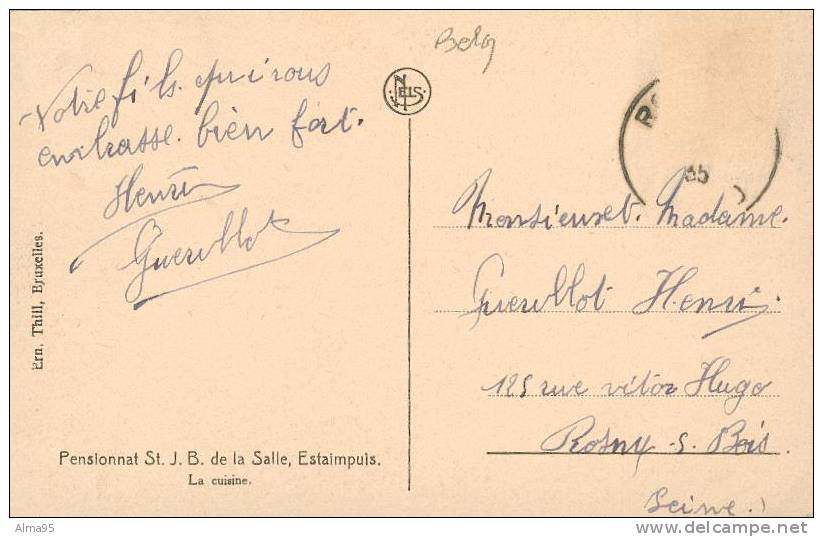 Votre fils. qui vous
embrasse. bien fort.
Henri
Guerollot
Ern. Thill, Bruxelles.
Pensionnat St. J. B. de la Salle, Estaimpuis.
La cuisine.
NELS
Belg
35
Monsieur et. Madame.
Guerollot Henri.
125 rue vitor Hugo
Rosny-s. Bois.
Seine.)
Alma95
delcampe.net